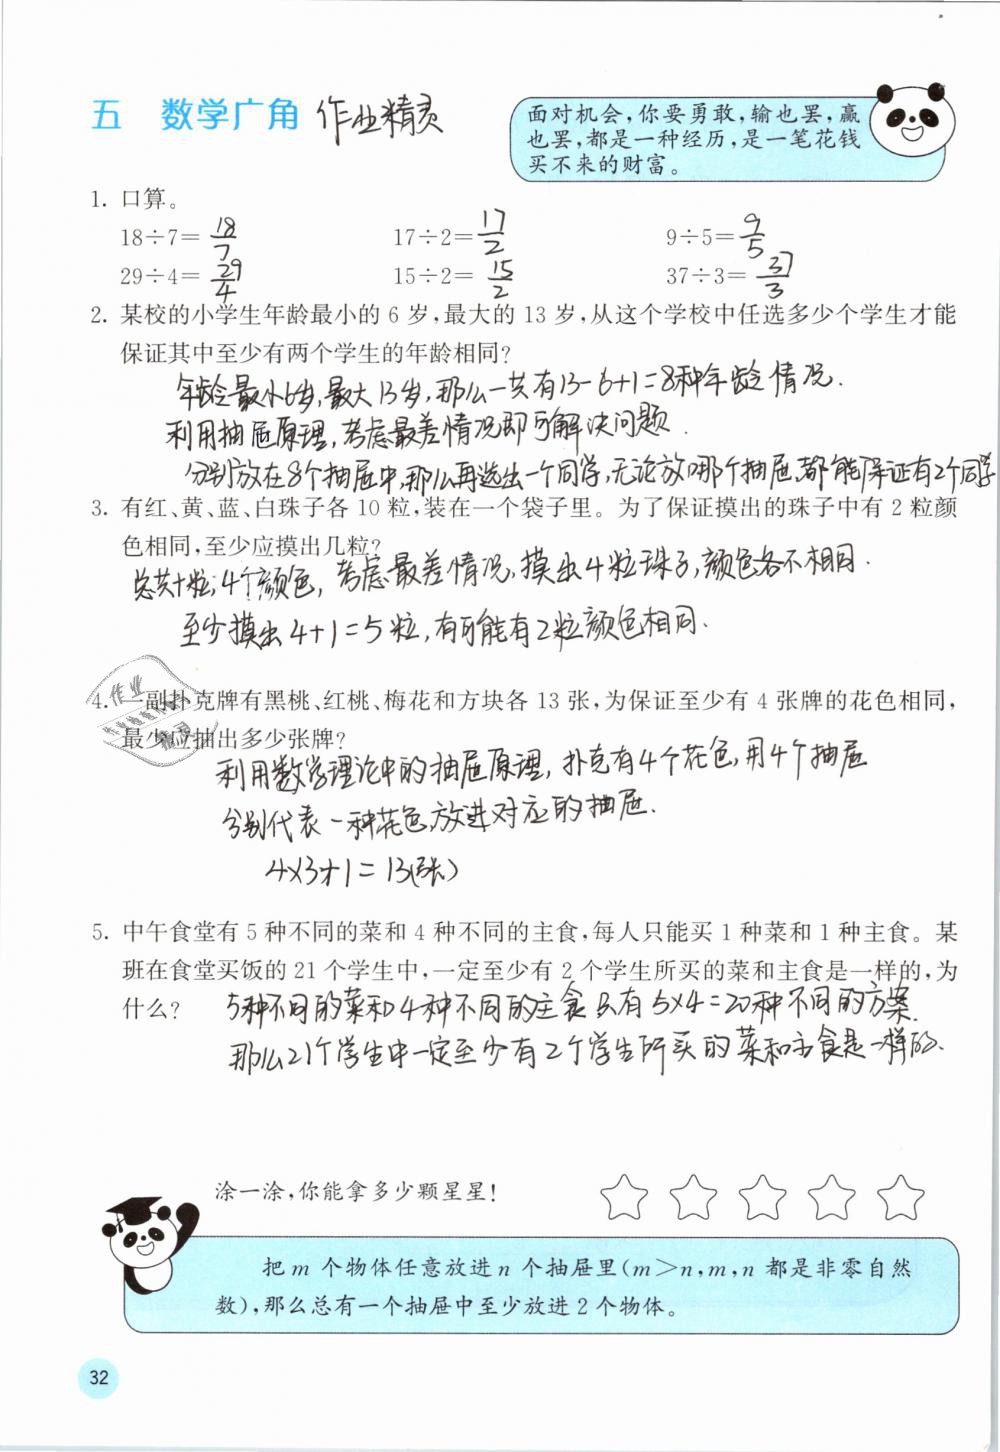 五 数学广角 作业精灵
面对机会,你要勇敢,输也罢,赢
也罢,都是一种经历,是一笔花钱
买不来的财富。
1. 口算。
18÷7= 18/7 17÷2= 17/2 9÷5= 9/5
29÷4= 29/4 15÷2= 15/2 37÷3= 37/3
2. 某校的小学生年龄最小的 6 岁,最大的 13 岁,从这个学校中任选多少个学生才能
保证其中至少有两个学生的年龄相同?
年龄最小6岁,最大13岁,那么一共有13-6+1=8种年龄情况.
利用抽屉原理,考虑最差情况即可解决问题.
分别放在8个抽屉中,那么再选出一个同学,无论放哪个抽屉,都能保证有2个同学
3. 有红、黄、蓝、白珠子各 10 粒,装在一个袋子里。为了保证摸出的珠子中有 2 粒颜
色相同,至少应摸出几粒?
总共十粒,4个颜色,考虑最差情况,摸出4粒珠子,颜色各不相同.
至少摸出4+1=5粒,有可能有2粒颜色相同.
4. 一副扑克牌有黑桃、红桃、梅花和方块各 13 张,为保证至少有 4 张牌的花色相同,
最少应抽出多少张牌?
利用数学理论中的抽屉原理,扑克有4个花色,用4个抽屉
分别代表一种花色,放进对应的抽屉.
4×3+1=13(张)
5. 中午食堂有 5 种不同的菜和 4 种不同的主食,每人只能买 1 种菜和 1 种主食。某
班在食堂买饭的 21 个学生中,一定至少有 2 个学生所买的菜和主食是一样的,为
什么? 5种不同的菜和4种不同的主食只有5×4=20种不同的方案.
那么21个学生中一定至少有2个学生所买的菜和主食是一样的.
涂一涂,你能拿多少颗星星!
把 m 个物体任意放进 n 个抽屉里(m>n,m,n 都是非零自然
数),那么总有一个抽屉中至少放进 2 个物体。
32